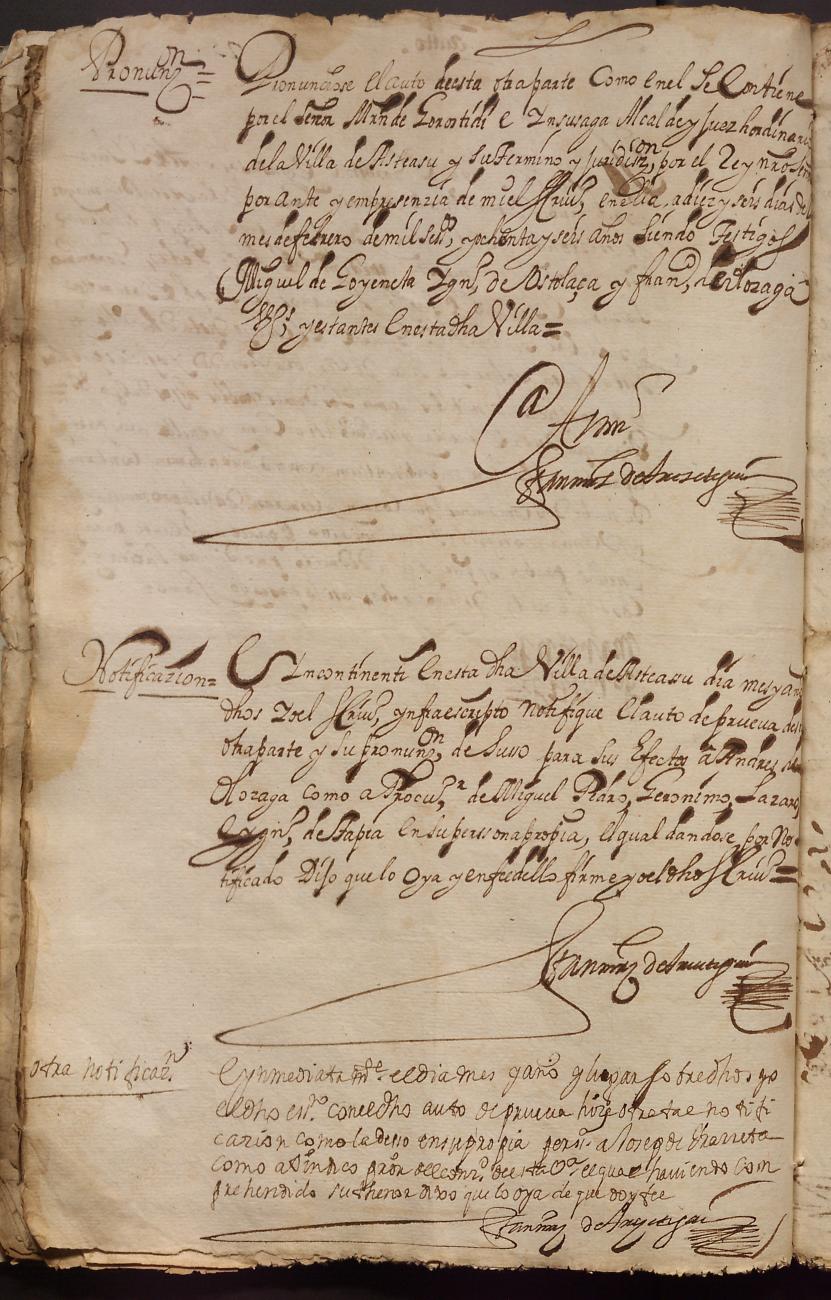 Pronunon=
Pronunciose el auto de esta otra parte Como en el Se Contiene
por el Señor Mrn de Gorostidi E Ynsusaga Alcalde y Juez hordinario
de la Villa de Asteasu y Su termino y juridizon, por el Rey nro Señor
por ante y en presenzia de mi el Scriuº, en ella, a diez y seis dias del
mes de febrero de mil Seisº, y ochenta y seis años Siendo Testigos
Miguel de Goyeneta Ygnº, de Ostolaça y franº, de Olozaga
Vos, y estantes En esta dha Villa=
Ante mi
Notificazion=
E Yncontinenti En esta dha Villa de Asteasu dia mes y año
dhos Yo el Scriuº, ynfraescripto notifique El auto de prueua de la
otra parte y su pronunon, de Suso para sus Efectos a Andres de
Olozaga como a Procur, de Miguel Pedro, Geronimo, Lazaro,
E Ygnº, de Tapia En su perssona propia, El qual dandose, por No-
tificado Dijo que lo Oya y en fee dello firme yo el dho Scriuº=
otra notificazn
E ynmediatamte el dia mes y año y lugar sobre dhos yo
el dho esno con el dho auto de prueua hize otra tal notifi
cazion como la de suso en su propia persna a Joseph de Ybarreta
como a Sindico pror del conzº de esta Vª el qual hauiendo Com
prehendido su thenor dixo que lo oya de que doy fee